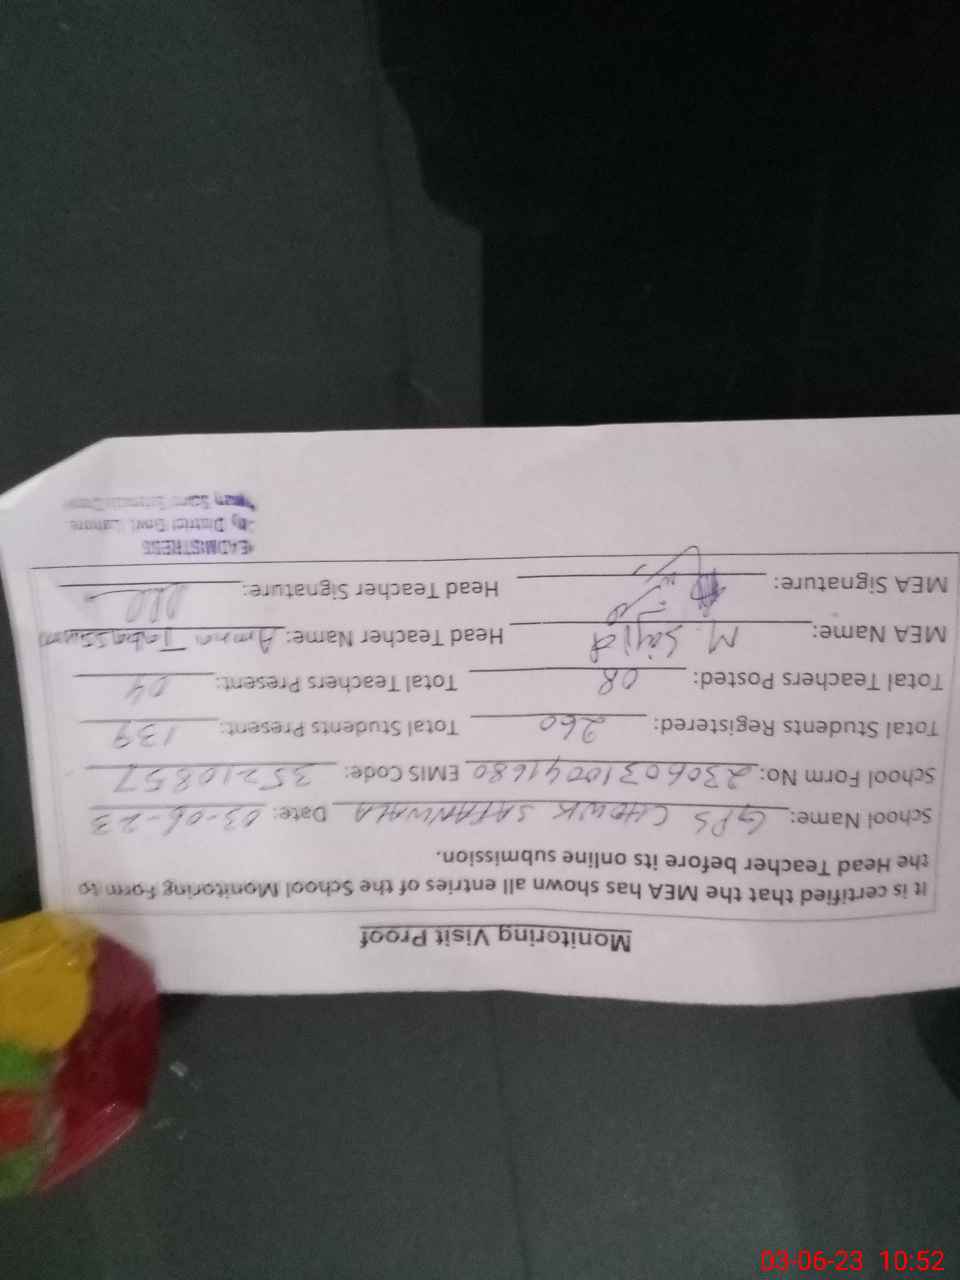 Monitoring Visit Proof
It is certified that the MEA has shown all entries of the School Monitoring Form to
the Head Teacher before its online submission.
School Name: GPS CHOWK SAFANWALA Date: 03-06-23
School Form No: 23060310041680 EMIS Code: 35210857
Total Students Registered: 260 Total Students Present: 139
Total Teachers Posted: 08 Total Teachers Present: 04
MEA Name: M. Sajid Head Teacher Name: Amna Tabassum
MEA Signature: Head Teacher Signature:
HEADMISTRESS
District Govt. Lahore
03-06-23 10:52